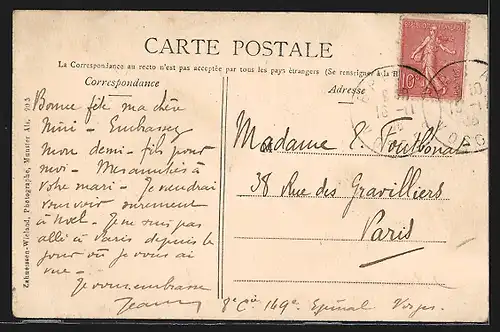 CARTE POSTALE
La Correspondance au recto n'est pas acceptée par tous les pays étrangers (Se renseigner à la
Correspondance
Adresse
Bonne fête ma chère
Mimi - Embrassez
mon demi-fils pour
moi - Mes amitiés à
votre mari - Je viendrai
vous voir sûrement
à Noel - Je ne suis pas
allé à Paris depuis le
jour où je vous ai
vue -
Je vous embrasse
Jean
8e Cie 149e Epinal Vosges.
Madame E.
38 Rue des Gravilliers
Paris
Zahneissen-Wieland, Photographe, Munster Als. 905
10